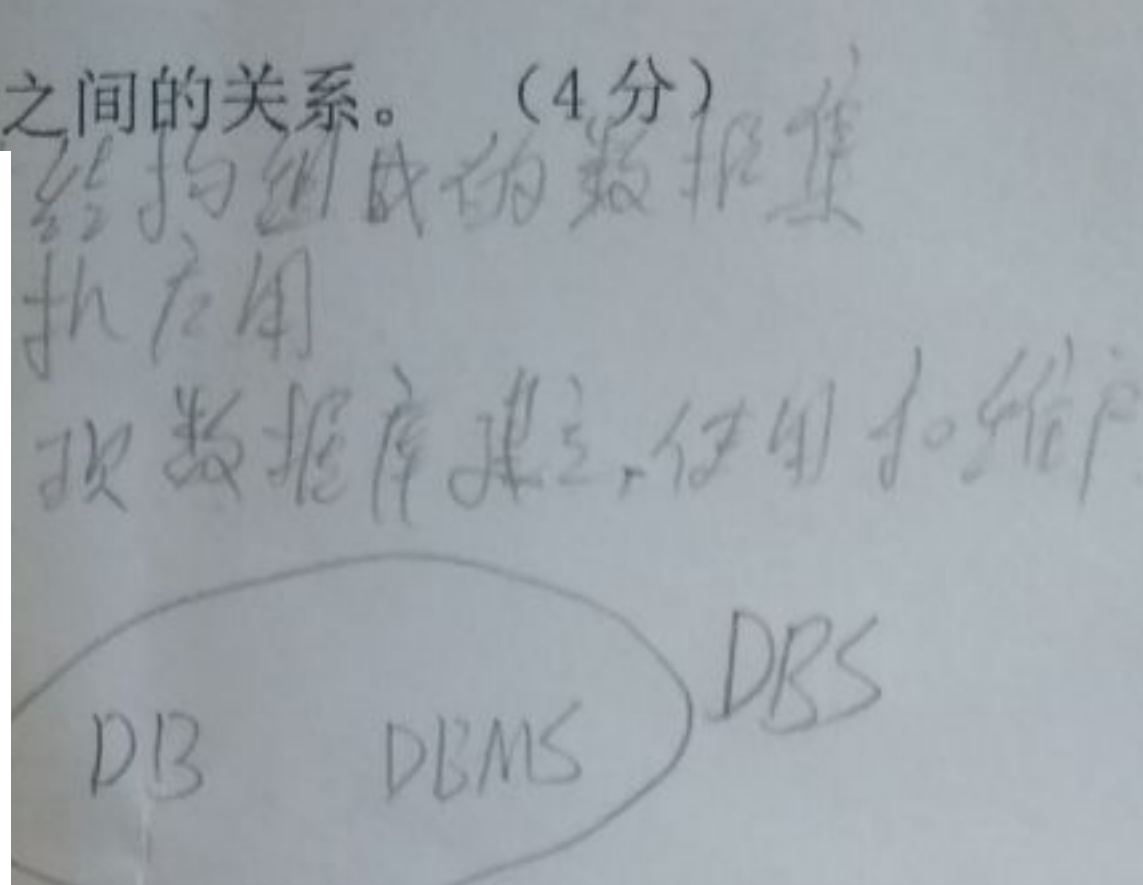 之间的关系。 （4 分）
结构组成的数据集
应用
数据库建立,使用和维护
DBS
DB DBMS